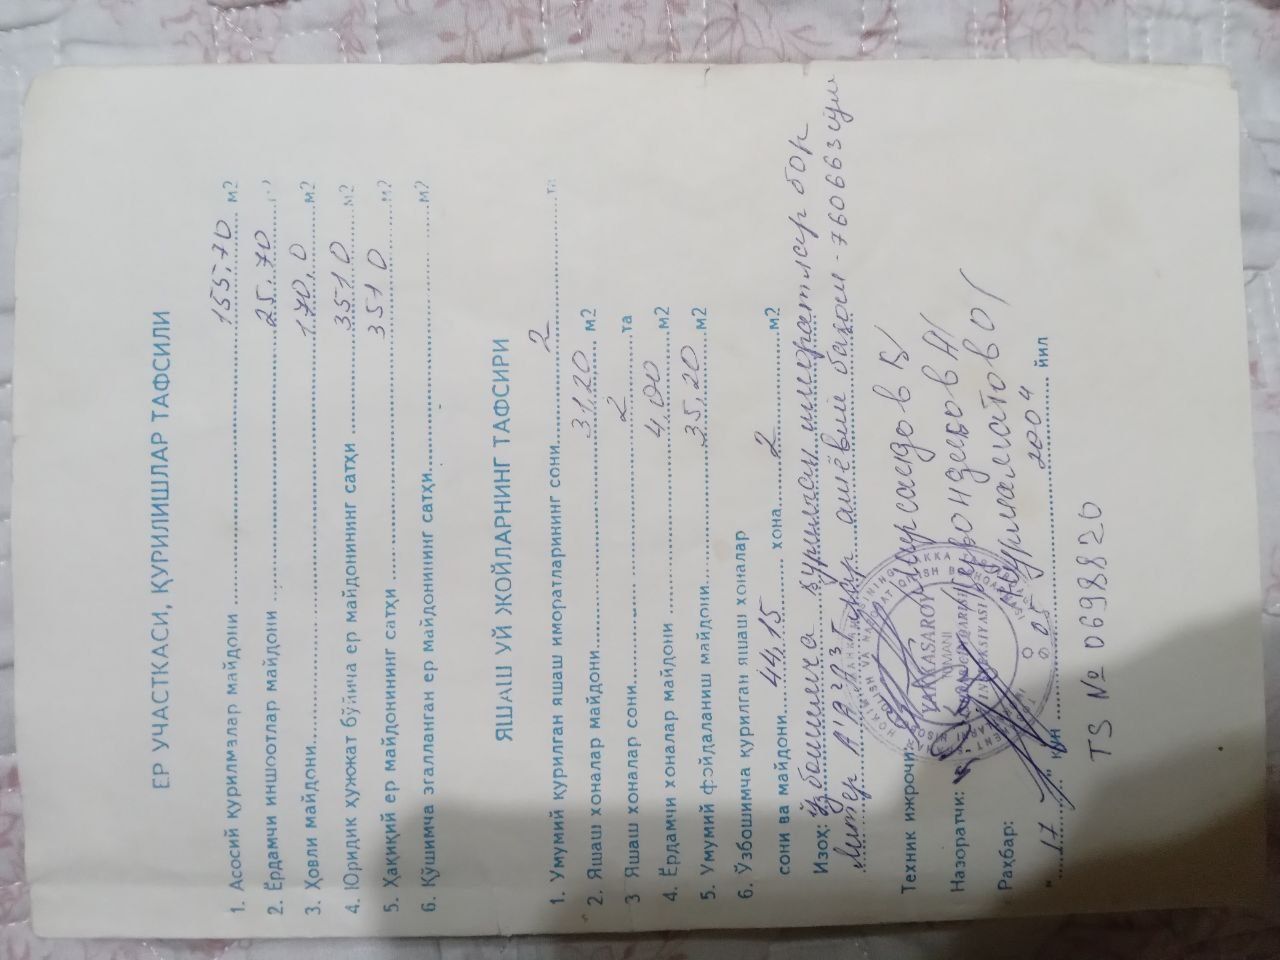 ЕР УЧАСТКАСИ, ҚУРИЛИШЛАР ТАФСИЛИ
1. Асосий қурилмалар майдони 155,70 м2
2. Ёрдамчи иншоотлар майдони 25,70
3. Ҳовли майдони 170,0 м2
4. Юридик ҳужжат бўйича ер майдонининг сатҳи 351 0 м2
5. Ҳақиқий ер майдонининг сатҳи 351 0 м2
6. Қўшимча эгалланган ер майдонининг сатҳи м2
ЯШАШ УЙ ЖОЙЛАРНИНГ ТАФСИРИ
1. Умумий қурилган яшаш иморатларининг сони 2 та
2. Яшаш хоналар майдони 31,20 м2
3 Яшаш хоналар сони 2 та
4. Ёрдамчи хоналар майдони 4,00 м2
5. Умумий фойдаланиш майдони 35,20 м2
6. Ўзбошимча қурилган яшаш хоналар
сони ва майдони 44,15 хона 2 м2
Изоҳ: Ўзбошимча қурилган иморатлар бор
Литер баҳоси - 7606663 сўм
Техник ижрочи:
Назоратчи:
Раҳбар: Нурмаматов О
" 17 " кун 05 2004 йил
TS № 0698820